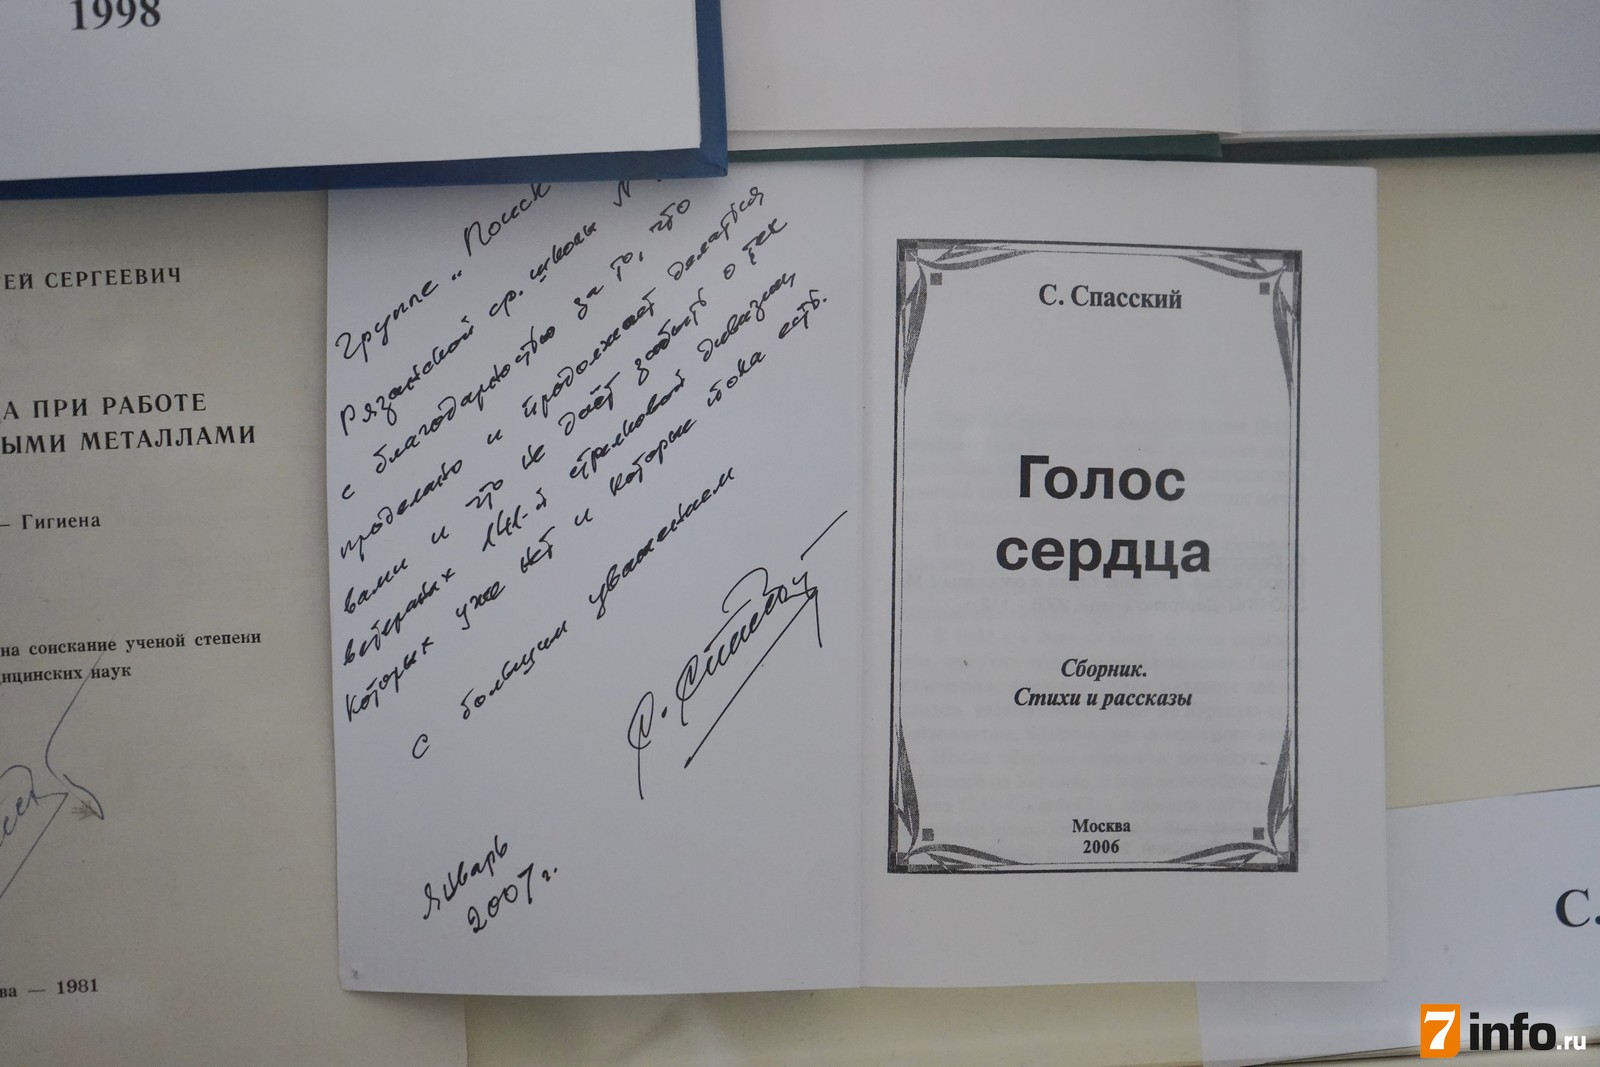 1998
ЕЙ СЕРГЕЕВИЧ
ДА ПРИ РАБОТЕ
ЫМИ МЕТАЛЛАМИ
— Гигиена
на соискание ученой степени
ицинских наук
ва — 1981
Группе „Поиск
Рязанской ср. школы №
с благодарностью за то, что
проделано и продолжает делаться
вами и что не даёт забыть о тех
ветеранах 141-й стрелковой дивизии,
которых уже нет и которые пока есть.
С большим уважением
С. Спасский
Январь
2007 г.
С. Спасский
Голос
сердца
Сборник.
Стихи и рассказы
Москва
2006
С.
7info.ru